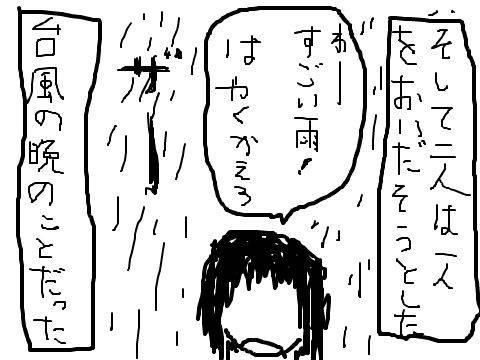 そして二人は一人
をおいだそうとした
わー
すごい雨!
はやくかえろ
ザー
台風の晩のことだった